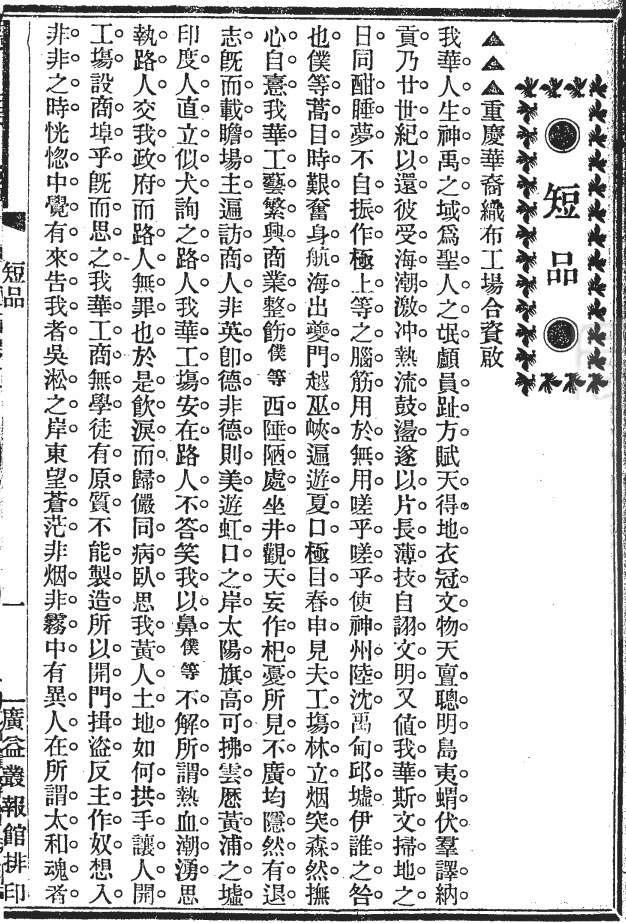 短品
▲▲▲重慶華裔織布工場合資啟
我華人生神禹之域爲聖人之氓顱員趾方賦天得地衣冠文物天亶聰明島夷蝟伏羣譯納
貢乃廿世紀以還彼受海潮激冲熱流鼓盪遂以片長薄技自詡文明又値我華斯文掃地之
日同酣睡夢不自振作極上等之腦筋用於無用嗟乎嗟乎使神州陸沈禹甸邱墟伊誰之咎
也僕等蒿目時艱奮身航海出夔門越巫峽遍遊夏口極目春申見夫工塲林立烟突森然撫
心自意我華工藝繁興商業整飭僕等西陲陋處坐井觀天妄作杞憂所見不廣均隱然有退
志旣而載瞻塲主遍訪商人非英卽德非德則美遊虹口之岸太陽旗高可拂雲歷黃浦之墟
印度人直立似犬詢之路人我華工塲安在路人不答笑我以鼻僕等不解所謂熱血潮湧思
執路人交我政府而路人無罪也於是飲淚而歸儼同病臥思我黃人土地如何拱手讓人開
工塲設商埠乎旣而思之我華工商無學徒有原質不能製造所以開門揖盜反主作奴想入
非非之時恍惚中覺有來告我者吳淞之岸東望蒼茫非烟非霧中有異人在所謂太和魂者
短品
一
廣益叢報館排印